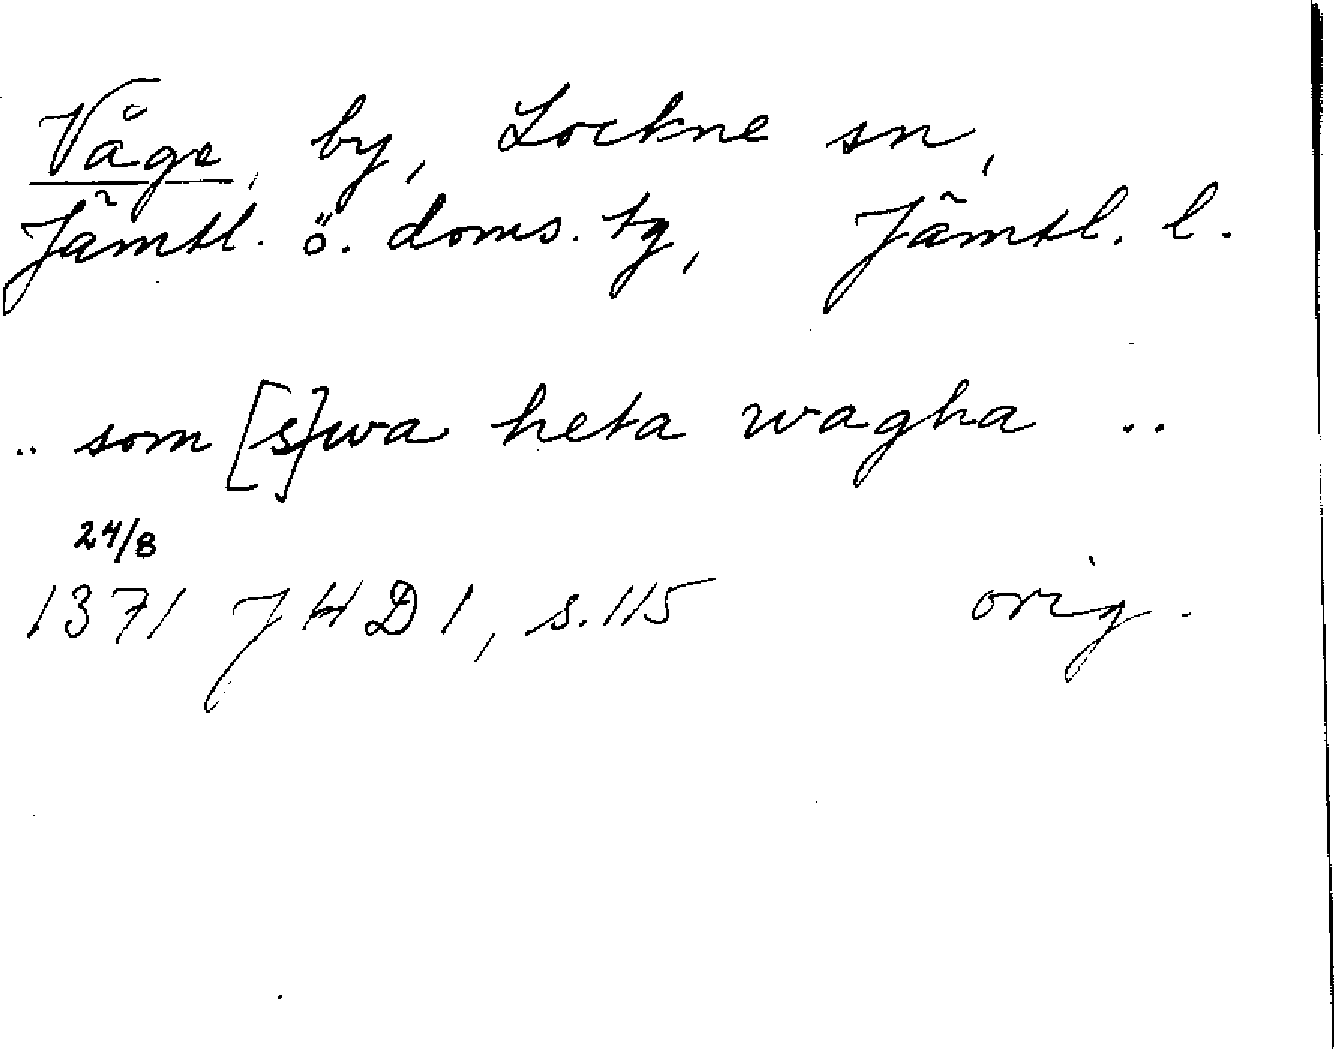 Våge, by, Lockne sn,
Jämtl. ö. doms. tg, Jämtl. l.
.. som [s]wa heta wagha ..
24/8
1371 JHD 1, s. 115 orig.